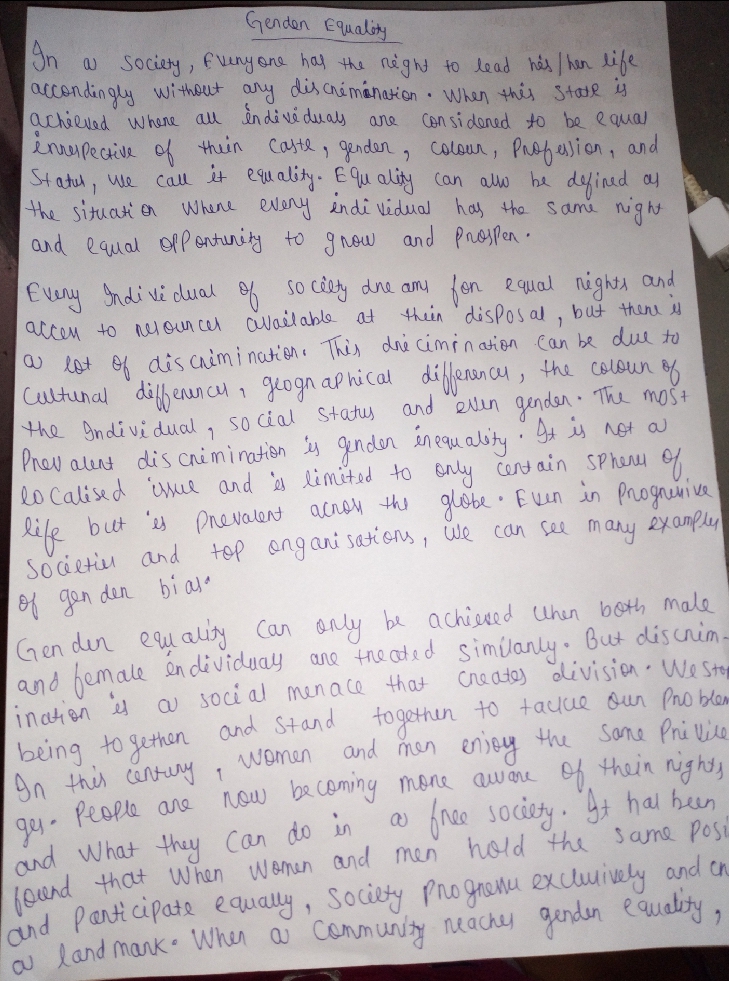 Gender Equality
In a society, Everyone has the right to lead his/her life
accordingly without any discrimination. When this state is
achieved where all individuals are considered to be equal
irrespective of their caste, gender, colour, Profession, and
Status, we call it equality. Equality can also be defined as
the situation where every individual has the same right
and equal opportunity to grow and Prosper.
Every Individual of society dreams for equal rights and
access to resources available at their disposal, but there is
a lot of discrimination. This discrimination can be due to
Cultural differences, geographical differences, the colour of
the Individual, social status and even gender. The most
Prevalent discrimination is gender inequality. It is not a
localised issue and is limited to only certain spheres of
life but is Prevalent across the globe. Even in Progressive
societies and top organisations, we can see many examples
of gender bias.
Gender equality can only be achieved when both male
and female individuals are treated similarly. But discrim-
ination is a social menace that creates division. We stop
being together and stand together to tackle our Problem
In this century, women and men enjoy the same Privile
ges. People are now becoming more aware of their rights
and what they can do in a free society. It has been
found that when women and men hold the same Posi
and Participate equally, society progresses exclusively and cr
a landmark. When a community reaches gender equality,